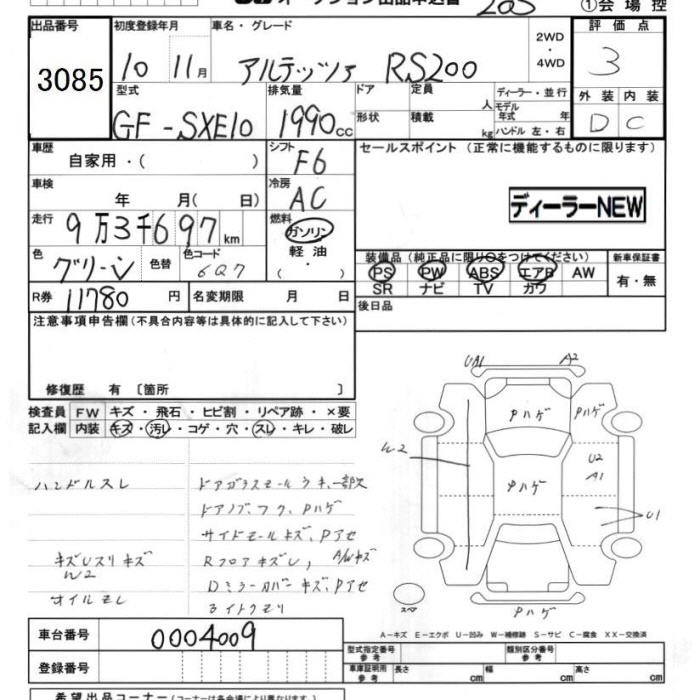 オークション出品申込書 203 ①会場控
出品番号 初度登録年月 車名・グレード 2WD・4WD 評価点
3085 10 11月 アルテッツァ RS200 3
型式 排気量 ドア 定員 人 ディーラー・並行 外装 内装
GF-SXE10 1990cc 形状 積載 kg モデル年式 年 ハンドル左・右 D C
車歴 シフト セールスポイント(正常に機能するものに限ります)
自家用・( ) F6
車検 年 月( 日) 冷房 AC
ディーラーNEW
走行 9万3千697km 燃料 ガソリン
軽油・( )
色 グリーン 色替 色コード 6Q7
装備品(純正品に限り○をつけてください) 新車保証書
PS PW ABS エアB AW 有・無
SR ナビ TV カワ
R券 11780円 名変期限 月 日 後日品
注意事項申告欄(不具合内容等は具体的に記入して下さい)
修復歴 有〔箇所 〕
検査員記入欄 FW キズ・飛石・ヒビ割・リペア跡・×要
内装 キズ・汚レ・コゲ・穴・スレ・キレ・破レ
ハンドルスレ ドアガラスモールウキ、一部欠
ドアノブ、フク、Pハゲ
サイドモールキズ、Pアセ
キズUスリキズ Rフロアキズし、A/Wキズ
W2 Dミラーカバーキズ、Pアセ
オイルモレ ライトクモリ
UA1 A2
Pハゲ Pハゲ
W2 U2
A1
Pハゲ U1
スペア Pハゲ
A-キズ E-エクボ U-凹み W-補修跡 S-サビ C-腐食 XX-交換済
車台番号 0004009 型式指定番号参考 類別区分番号参考
登録番号 車庫証明用参考 長さ cm 幅 cm 高さ cm
希望出品コーナー(コーナーは各会場により異なります)